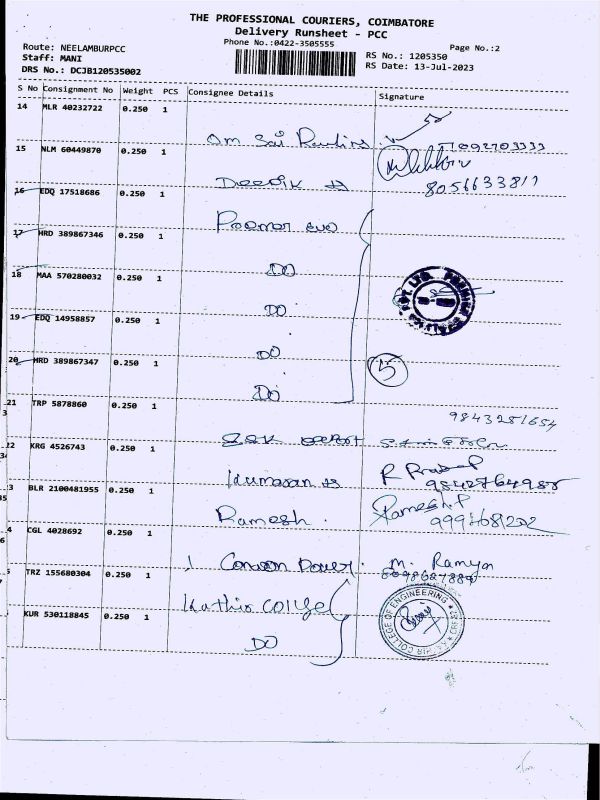 THE PROFESSIONAL COURIERS, COIMBATORE
Delivery Runsheet - PCC
Phone No.:0422-3505555
Page No.:2
Route: NEELAMBURPCC
Staff: MANI
DRS No.: DCJB120535002
RS No.: 1205350
RS Date: 13-Jul-2023
S No Consignment No Weight PCS Consignee Details Signature
14 MLR 40232722 0.250 1
Om Sai
15 NLM 60449870 0.250 1
Deepik
8056633811
16 EDQ 17518686 0.250 1
Premier Evo
17 HRD 389867346 0.250 1
DO
18 MAA 570280032 0.250 1
DO
PVT. LTD.
19 EDQ 14958857 0.250 1
DO
20 HRD 389867347 0.250 1
DO
5
21 TRP 5878860 0.250 1
9843251654
22 KRG 4526743 0.250 1
Kumaran
9842764988
3 BLR 2100481955 0.250 1
Ramesh.
Ramesh.P
4 CGL 4028692 0.250 1
M. Ramya
TRZ 155680304 0.250 1
Kathir College
COLLEGE OF ENGINEERING
KUR 530118845 0.250 1
DO